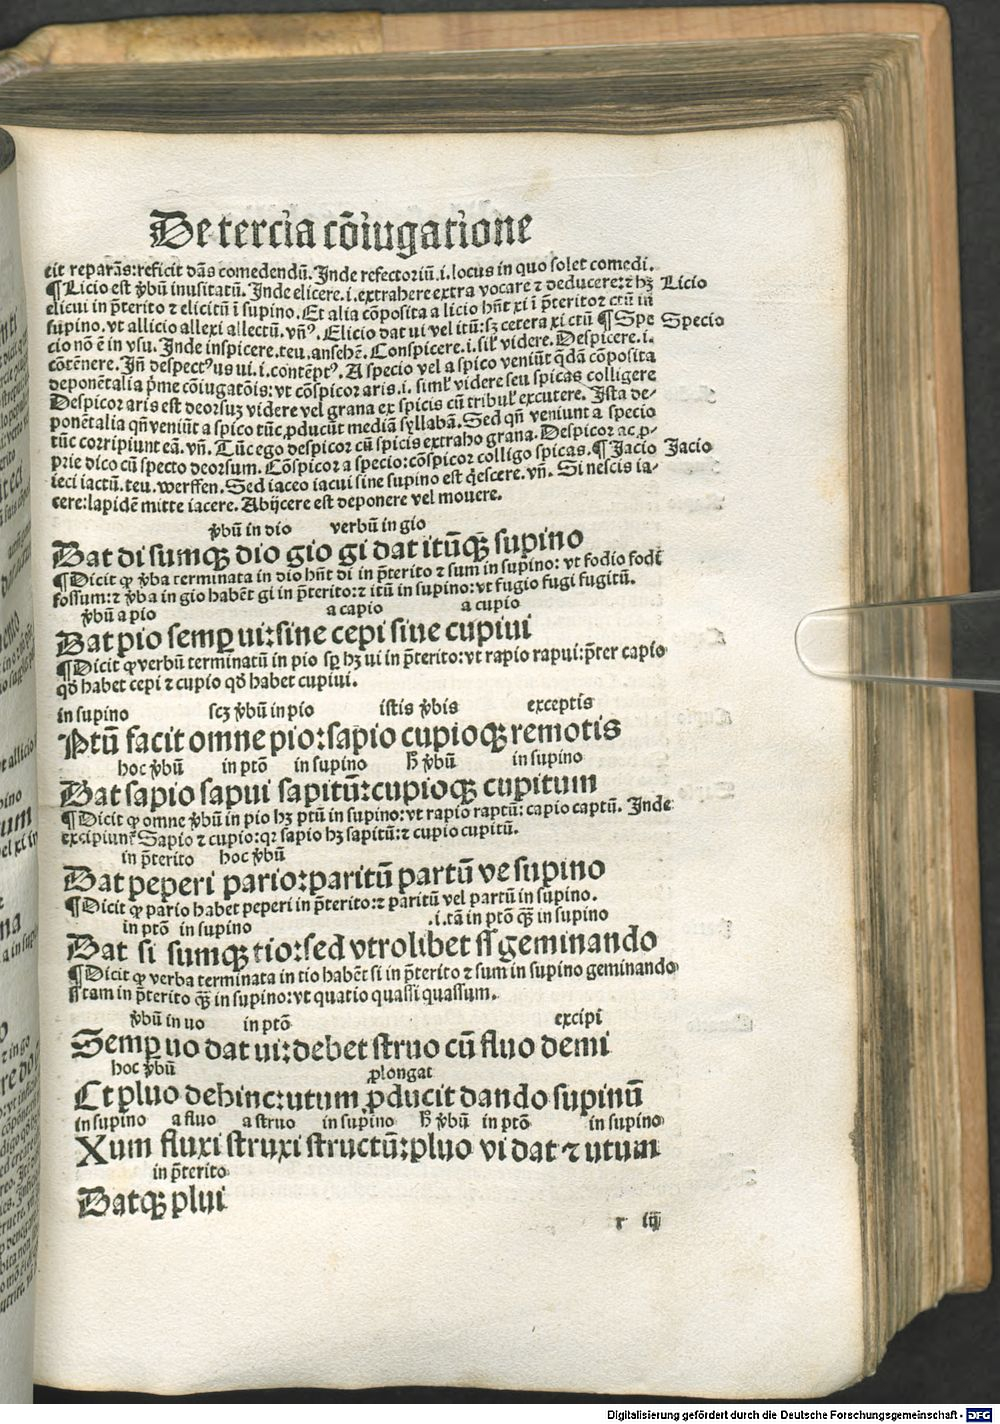 De tercia cōiugatione
cit reparās: reficit dās comedendū. Inde refectoriū .i. locus in quo solet comedi.
¶ Licio est v̄bū inusitatū. Inde elicere .i. extrahere extra vocare ⁊ deducere: ⁊ hꝫ Licio
elicui in p̄terito ⁊ elicitū ī supino. Et alia cōposita a licio hn̄t xi ī p̄terito ⁊ ctū in
supino. vt allicio allexi allectū. vn̄ꝰ. Elicio dat ui vel itū: sꝫ cetera xi ctū ¶ Spe Specio
cio nō ē in vsu. Inde inspicere .teu. ansehē. Conspicere .i. sil̛ videre. Despicere .i.
cōtēnere. Jn̄ despectꝰ us ui .i. contēptꝰ. A specio vel a spico veniūt q̄dā cōposita
deponētalia p̄me cōiugatōis: vt cōspicor aris .i. siml̛ videre seu spicas colligere
Despicor aris est deorsuꝫ videre vel grana ex spicis cū tribul̛ excutere. Ista de-
ponētalia qn̄ veniūt a spico tūc ꝓducūt mediā syllabā. Sed qn̄ veniunt a specio
tūc corripiunt eā. vn̄. Tūc ego despicor cū spicis extraho grana. Despicor ac ꝓ-
prie dico cū specto deorsum. Cōspicor a specio: cōspicor colligo spicas. ¶ Jacio Jacio
ieci iactū. teu. werffen. Sed iaceo iacui sine supino est q̇escere. vn̄. Si nescis ia-
cere: lapidē mitte iacere. Abijcere est deponere vel mouere.
v̄bū in dio verbū in gio
Dat di sumqꝫ dio gio gi dat itūqꝫ supino
¶ Dicit ꝙ v̄ba terminata in dio hn̄t di in p̄terito ⁊ sum in supino: vt fodio fodi
fossum: ⁊ v̄ba in gio habēt gi in p̄terito: ⁊ itū in supino: vt fugio fugi fugitū.
v̄bū a pio a capio a cupio
Dat pio semꝑ ui: sine cepi sine cupiui
¶ Dicit ꝙ verbū terminatū in pio sꝑ hꝫ ui in p̄terito: vt rapio rapui: p̄ter capio
qd̄ habet cepi ⁊ cupio qd̄ habet cupiui.
in supino scꝫ v̄bū in pio istis v̄bis exceptis
Ptū facit omne pio: sapio cupioqꝫ remotis
hoc v̄bū in ptō in supino h̄ v̄bū in supino
Dat sapio sapui sapitū: cupioqꝫ cupitum
¶ Dicit ꝙ omne v̄bū in pio hꝫ ptū in supino: vt rapio raptū: capio captū. Inde
excipiunt̄ Sapio ⁊ cupio: qꝛ sapio hꝫ sapitū: ⁊ cupio cupitū.
in p̄terito hoc v̄bū
Dat peperi pario: paritū partū ve supino
¶ Dicit ꝙ pario habet peperi in p̄terito: ⁊ paritū vel partū in supino.
in ptō in supino .i. tā in ptō qꝫ̄ in supino
Dat si sumqꝫ tio: sed vtrolibet ss geminando
¶ Dicit ꝙ verba terminata in tio habēt si in p̄terito ⁊ sum in supino geminando
s tam in p̄terito qꝫ̄ in supino: vt quatio quassi quassum.
v̄bū in uo in ptō excipi
Semꝑ uo dat ui: debet struo cū fluo demi
hoc v̄bū ꝓlongat
Et pluo dehinc: utum ꝓducit dando supinū
in supino a fluo a struo in supino h̄ v̄bū in ptō in supino
Xum fluxi struxi structū: pluo vi dat ⁊ utum
in p̄terito
Datqꝫ plui
r iij
Digitalisierung gefördert durch die Deutsche Forschungsgemeinschaft - DFG